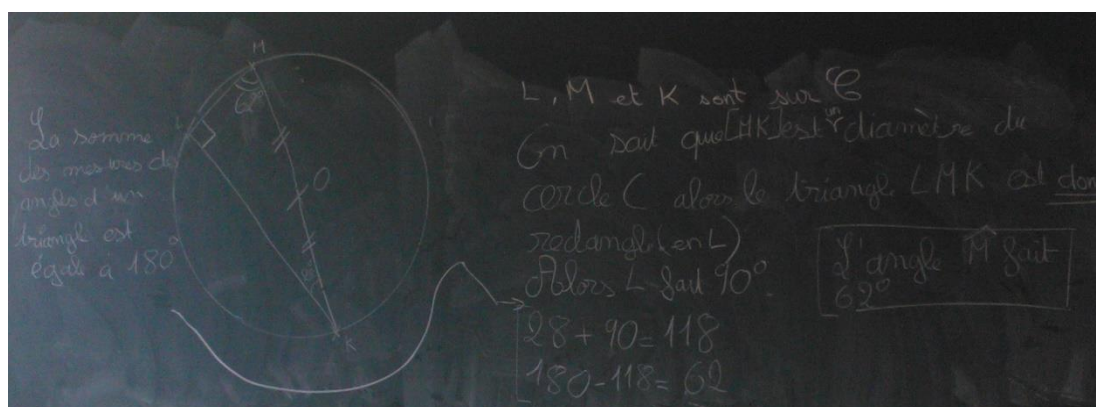 La somme
des mesures de
angles d'un
triangl est
égale à 180°
M
L
62°
O
28°
K
L, M et K sont sur C
On sait que [MK] est un diamètre du
cercle C alors le triangle LMK est donc
rectangle (en L)
Alors L fait 90°.
28 + 90 = 118
180 - 118 = 62
L'angle M̂ fait
62°